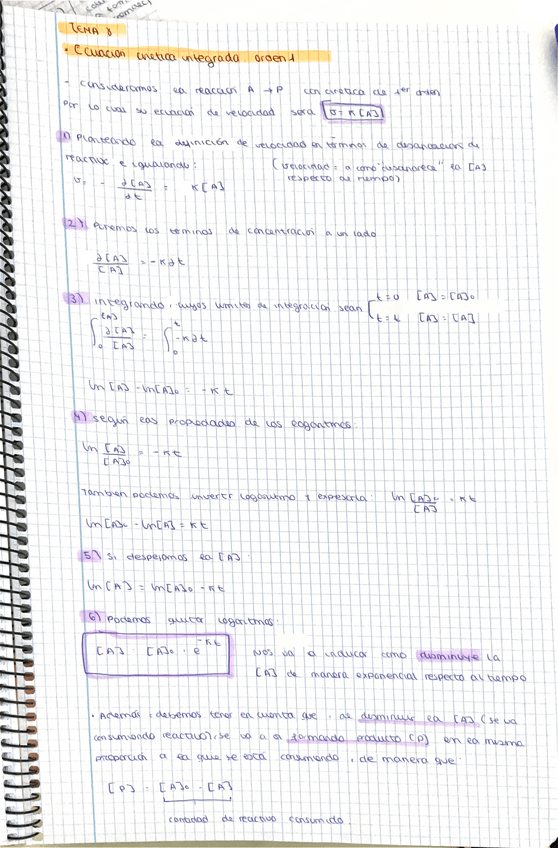 TEMA 8
• Ecuación cinética integrada orden 1
- Consideramos la reacción A → P con cinética de 1er orden
Por lo cual su ecuación de velocidad será v = K [A]
1) Planteando la definición de velocidad en términos de desaparición de
reactivo e igualando: (velocidad = a como "desaparece" la [A]
respecto al tiempo)
v = - ∂[A]/∂t = K [A]
2) Ponemos los términos de concentración a un lado
∂[A]/[A] = -K∂t
3) Integrando, cuyos límites de integración sean { t=0 [A]=[A]₀
t=t [A]=[A]
∫₀^[A] ∂[A]/[A] = ∫₀^t -K∂t
ln [A] - ln[A]₀ = -K t
4) según las propiedades de los logaritmos:
ln [A]/[A]₀ = -K t
También podemos invertir logaritmo y expresarla: ln [A]₀/[A] = K t
ln [A]₀ - ln[A] = K t
5) Si despejamos la [A]:
ln [A] = ln[A]₀ - K t
6) Podemos quitar logaritmos:
[A] = [A]₀ · e^-Kt Nos va a indicar como disminuye la
[A] de manera exponencial respecto al tiempo
• Además, debemos tener en cuenta que, al disminuir la [A] (se va
consumiendo reactivo), se va a ir formando producto (P) en la misma
proporción a la que se está consumiendo, de manera que:
[P] = [A]₀ - [A]
cantidad de reactivo consumido.